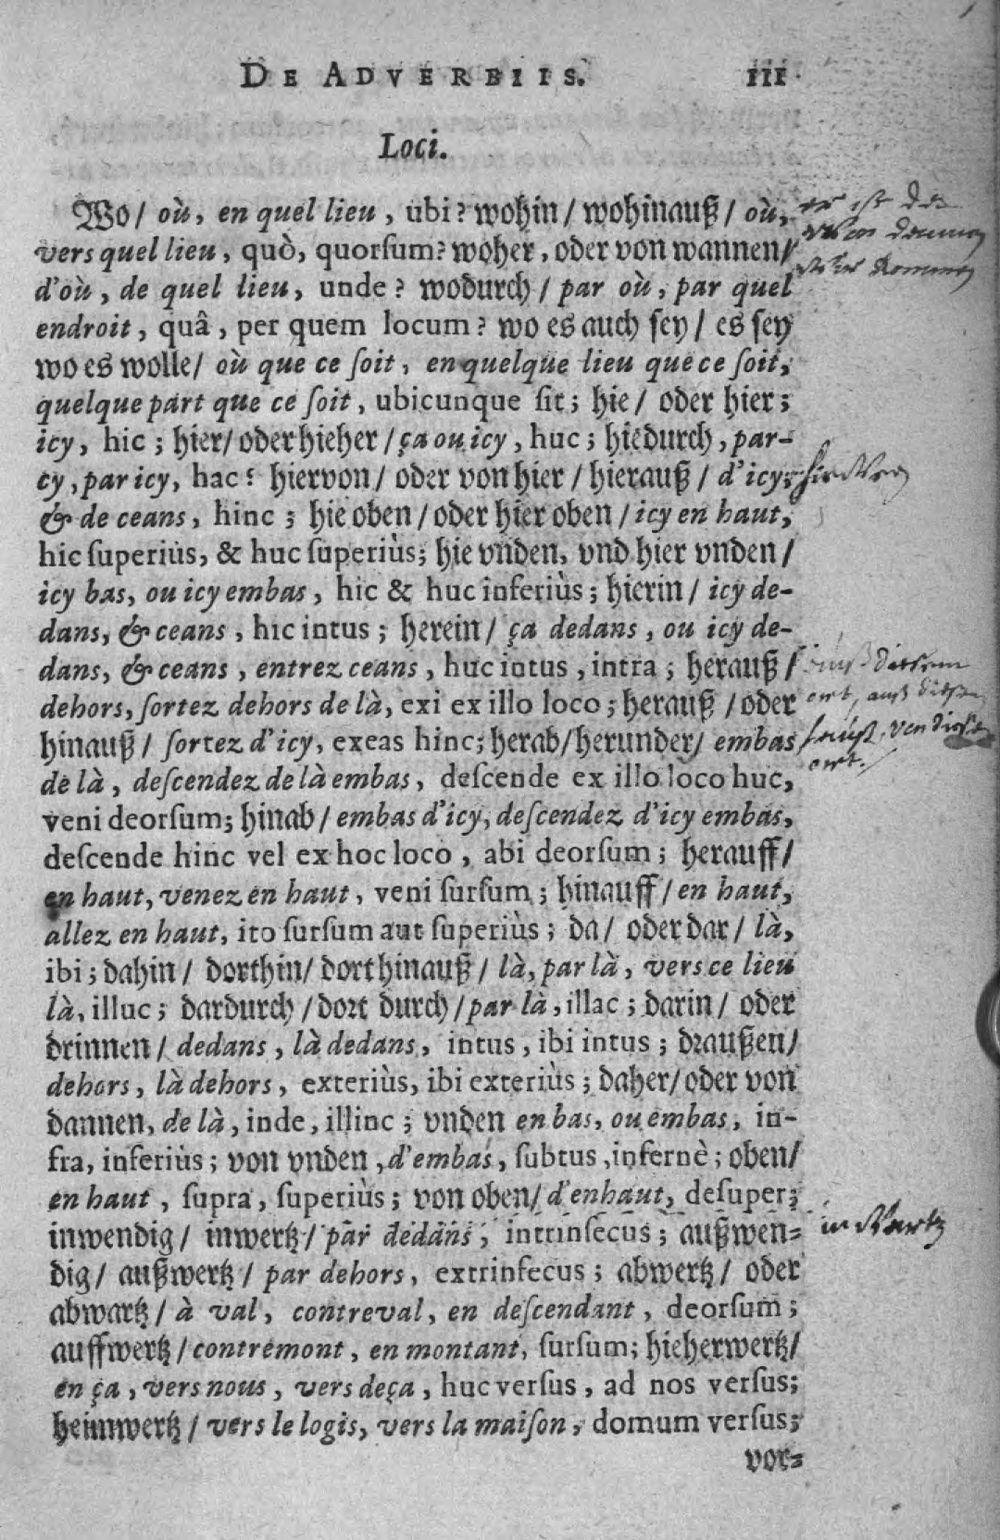 DE ADVERBIIS. 111
Loci.
Wo/ où, en quel lieu, ubi? wohin/ wohinauß/ où,
vers quel lieu, quò, quorſum? woher, oder von wannen/
d'où, de quel lieu, unde? wodurch/ par où, par quel
endroit, quâ, per quem locum? wo es auch ſey/ es ſey
wo es wolle/ où que ce ſoit, en quelque lieu que ce ſoit,
quelque part que ce ſoit, ubicunque ſit; hie/ oder hier;
icy, hic; hier/ oder hieher/ ça ou icy, huc; hiedurch, par-
cy, par icy, hac: hiervon/ oder von hier/ hierauß/ d'icy,
& de ceans, hinc; hie oben/ oder hier oben/ icy en haut,
hic ſuperiùs, & huc ſuperiùs; hie vnden, vnd hier vnden/
icy bas, ou icy embas, hic & huc inferiùs; hierin/ icy de-
dans, & ceans, hic intus; herein/ ça dedans, ou icy de-
dans, & ceans, entrez ceans, huc intus, intra; herauß/
dehors, ſortez dehors de là, exi ex illo loco; herauß/ oder
hinauß/ ſortez d'icy, exeas hinc; herab/ herunder/ embas
de là, deſcendez de là embas, deſcende ex illo loco huc,
veni deorſum; hinab/ embas d'icy, deſcendez d'icy embas,
deſcende hinc vel ex hoc loco, abi deorſum; herauff/
en haut, venez en haut, veni ſurſum; hinauff/ en haut,
allez en haut, ito ſurſum aut ſuperiùs; da/ oder dar/ là,
ibi; dahin/ dorthin/ dort hinauß/ là, par là, vers ce lieu
là, illuc; dardurch/ dort durch/ par là, illac; darin/ oder
drinnen/ dedans, là dedans, intus, ibi intus; draußen/
dehors, là dehors, exteriùs, ibi exteriùs; daher/ oder von
dannen, de là, inde, illinc; vnden en bas, ou embas, in-
fra, inferiùs; von vnden, d'embas, ſubtus, infernè; oben/
en haut, ſupra, ſuperiùs; von oben/ d'enhaut, deſuper;
inwendig/ inwertz/ par dedans, intrinſecus; außwen-
dig/ außwertz/ par dehors, extrinſecus; abwertz/ oder
abwartz/ à val, contreval, en deſcendant, deorſum;
auffwertz/ contremont, en montant, ſurſum; hieherwertz/
en ça, vers nous, vers deça, huc verſus, ad nos verſus;
heimwertz/ vers le logis, vers la maiſon, domum verſus;
vor-
er ist
kommen
ort, auß
von
ort.
inwartz